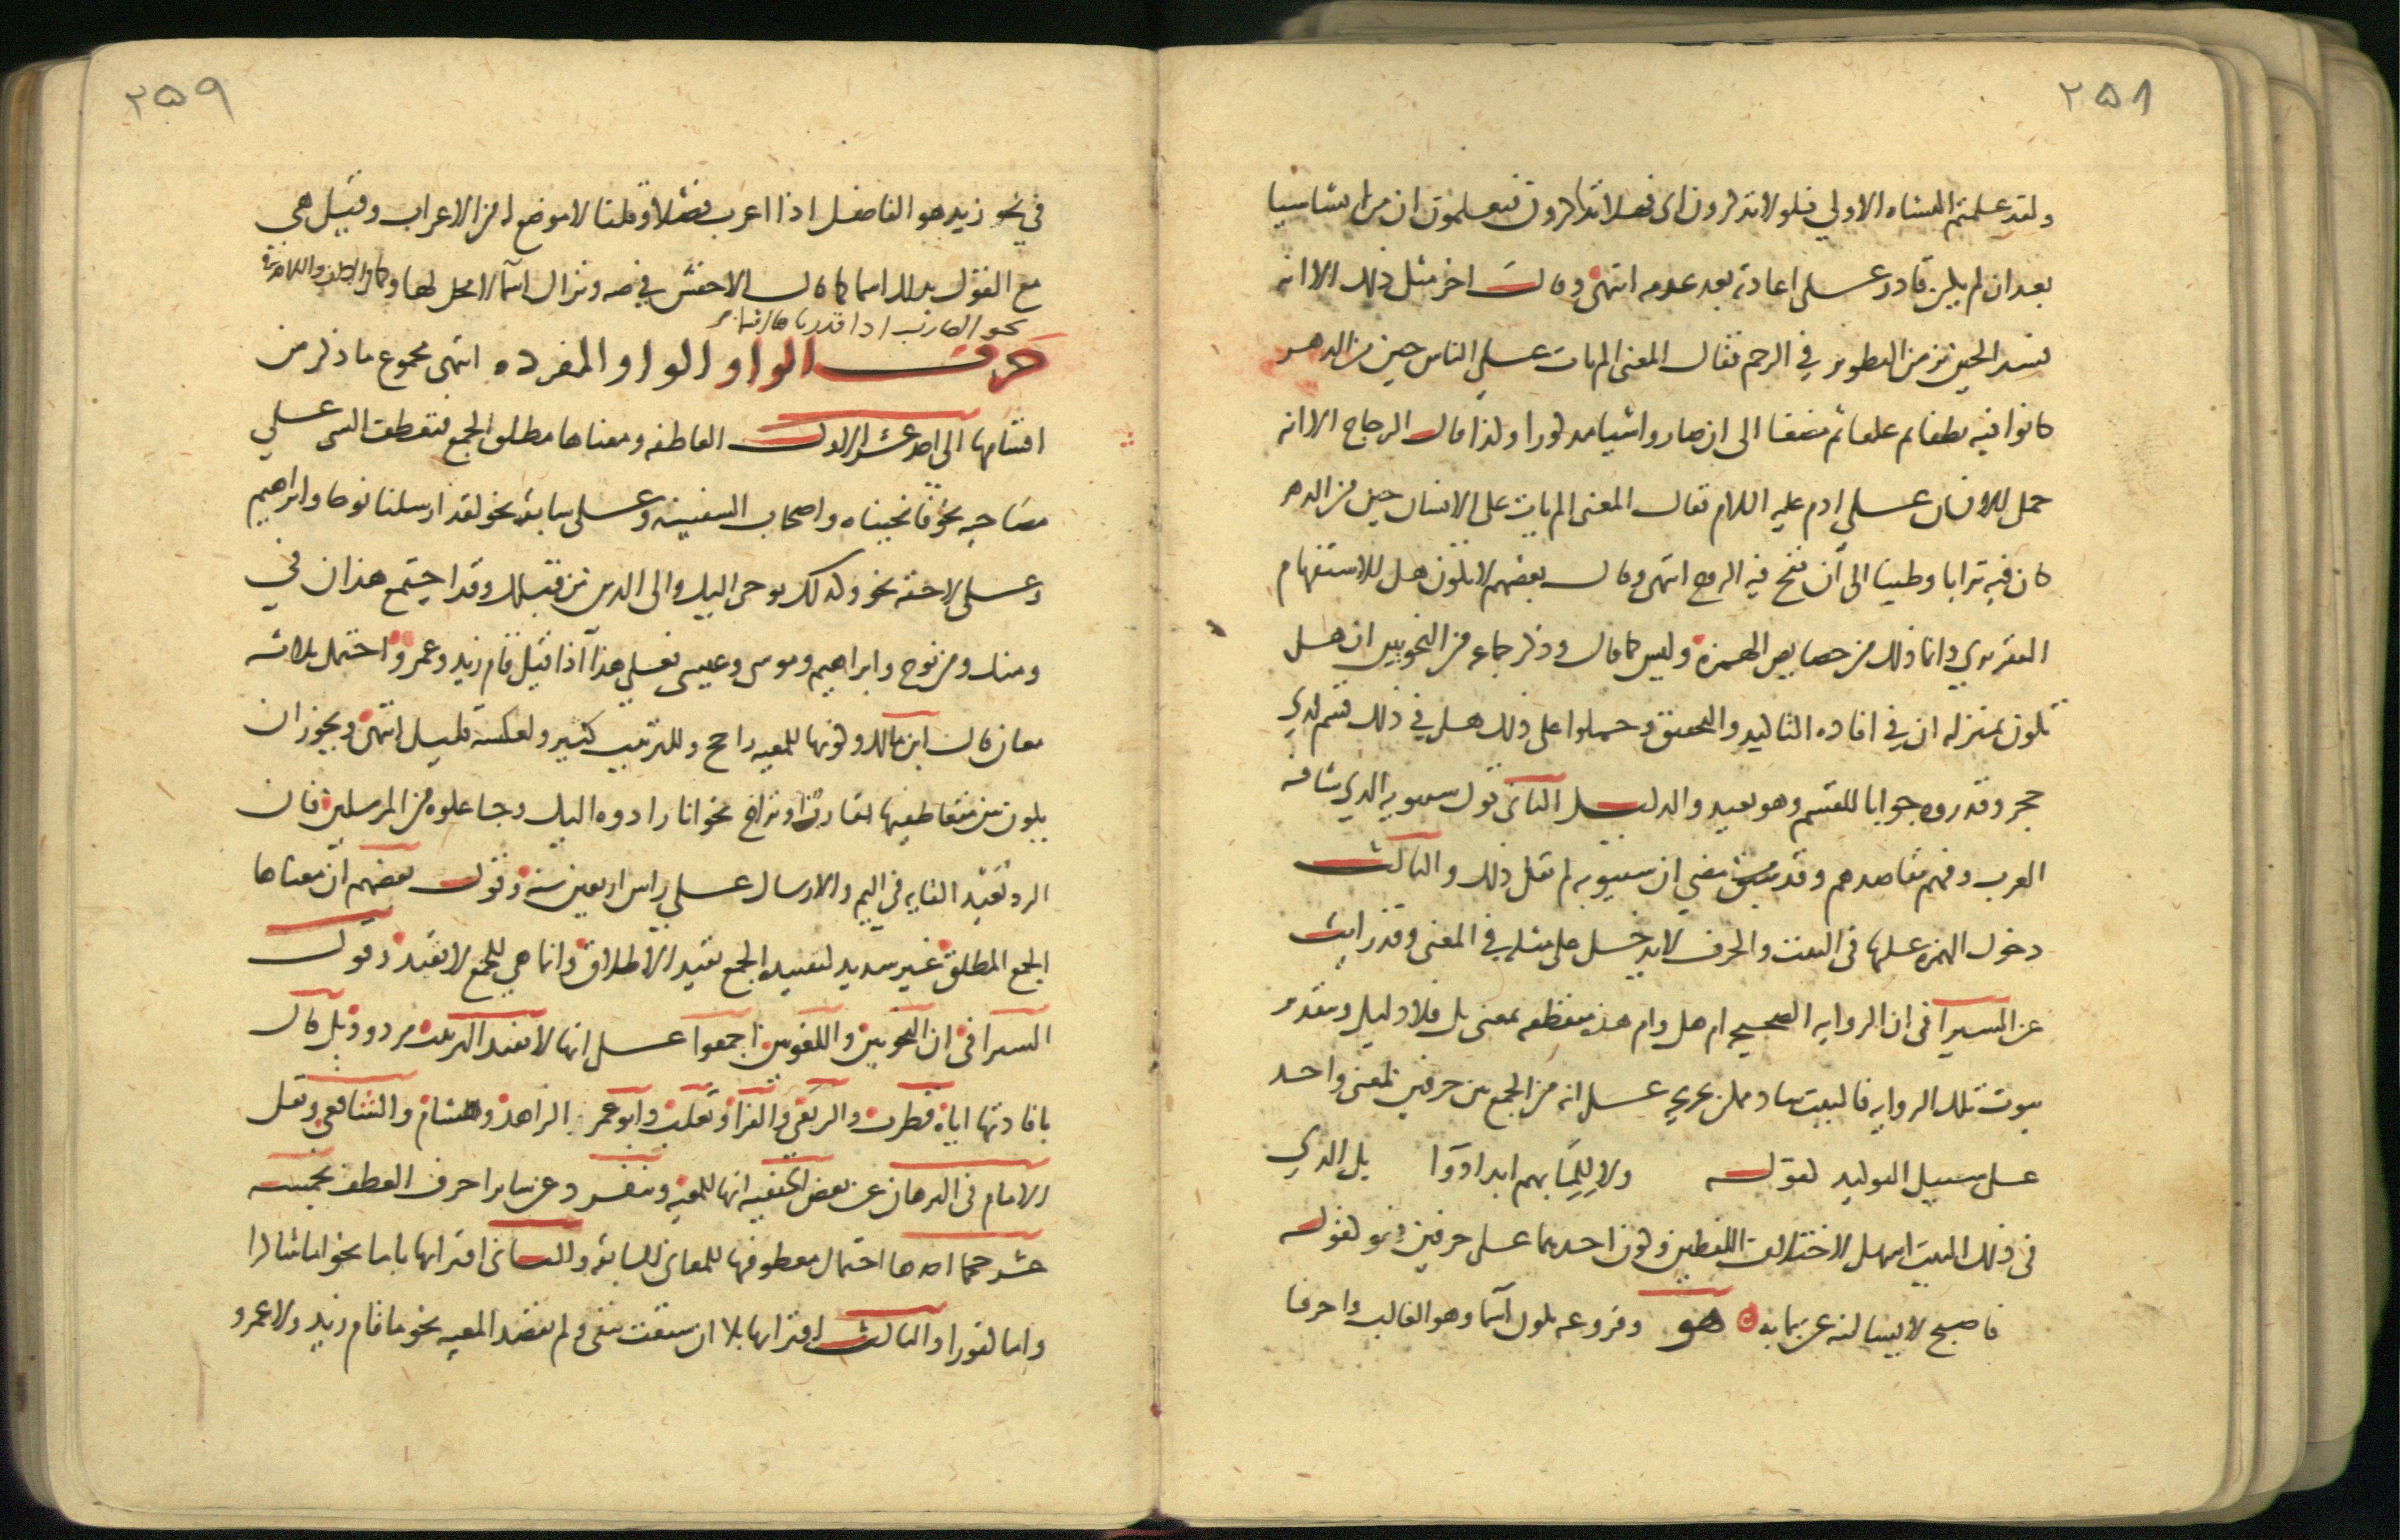 ٢٥٨
ولقد علمتم النشاه الاولي فلولا تذكرون اى فهلا تتذكرون فتعلمون ان من انشا شيا
بعد ان لم يكن قادر على اعادته بعد عدمه انتهى وقال اخر مثل ذلك الا انه
فسر الحين بزمن التطوير في الرحم فقال المعنى الم يات على الناس حين من الدهر
كانوا فيه نطفا ثم علقا ثم مضغا الى ان صاروا شيا مذكورا وكذا قال الزجاج الا انه
حمل الانسان على ادم عليه السلام فقال المعنى الم يات على الانسان حين من الدهر
كان فيه ترابا وطينا الى أن نفخ فيه الروح انتهى وقال بعضهم لا تكون هل للاستفهام
التقريري وانما ذلك من خصايص الهمزه وليس كما قال وذكر جماعه من النحويين ان هل
تكون بمنزله ان في افاده التاكيد والتحقيق وحملوا على ذلك هل في ذلك قسم لذي
حجر وقدروه جوابا للقسم وهو بعيد والدليل الثانى قول سيبويه الذي شافه
العرب وفهم مقاصدهم وقد مضي ان سيبويه لم يقل ذلك والثالث
دخول الهمزه عليها فى البيت والحرف لا يدخل على مثله في المعنى وقد رايت
عن السيرافى ان الروايه الصحيحه ام هل وام هذه منقطعه بمعنى بل فلا دليل وبتقدير
ثبوت تلك الروايه فالبيت شاذ فيمكن تخريجه على انه من الجمع بين حرفين لمعنى واحد
على سبيل التوكيد كقوله ولا لِلِمَا بهم ابدا دوآ بل الذي
فى ذلك البيت اسهل لاختلاف اللفظين وكون احدهما على حرفين فهو كقوله
فاصبح لا يسالنه عن بما به هو وفروعه تكون أسما وهو الغالب واحرفا
٢٥٩
في نحو زيد هو الفاضل اذا اعرب فصلا وقلنا لا موضع له من الاعراب وقيل هى
مع القول بذلك اسما كما قال الاخفش في صه ونزال اسما لا محل لها وكما في الالف واللام فى
نحو الضارب اذا قدرناهما اسما
حرف الواو الواو المفرده انتهى مجموع ما ذكر من
اقسامها الى احد عشر الاول العاطفه ومعناها مطلق الجمع فتعطف الشى على
مصاحبه نحو فانجيناه واصحاب السفينه وعلى سابقه نحو لقد ارسلنا نوحا وابراهيم
وعلى لاحقه نحو وكذلك يوحى اليك والى الذين من قبلك وقد اجتمع هذان في
ومنك ومن نوح وابراهيم وموسى وعيسى فعلى هذا اذا قيل قام زيد وعمرو احتمل ثلاثه
معان قال ابن مالك وكونها للمعيه راجح وللترتيب كثير ولعكسه قليل انتهى ويجوز ان
يكون بين متعاطفيها تقارب او تراخ نحو انا رادوه اليك وجاعلوه من المرسلين فان
الرد بعيد القايه فى اليم والارسال على راس اربعين سنه وقول بعضهم ان معناها
الجمع المطلق غير سديد لتقييد الجمع بقيد الاطلاق وانما هي للجمع لا بقيد وقول
السيرافى ان النحويين واللغويين اجمعوا على انها لا تفيد الترتيب مردود بل قال
بافادتها اياه قطرب والربعى والفرا وثعلب وابو عمر الزاهد وهشام والشافعى ونقل
الامام فى البرهان عن بعض الحنفيه انها للمعيه وتنفرد عن ساير احرف العطف بخمسه
عشر حكما احدها احتمال معطوفها للمعانى السابقه والثانى اقترانها باما نحو اما شاكرا
واما كفورا والثالث اقترانها بلا ان سبقت بنفى ولم تقصد المعيه نحو ما قام زيد ولا عمرو